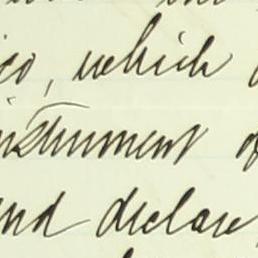 ico, which
instrument of
and declare